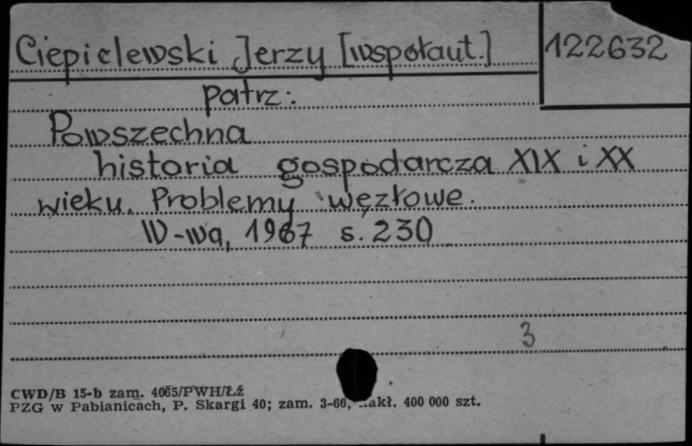 Ciepielewski Jerzy [współaut.] 122632
patrz:
Powszechna
historia gospodarcza XIX i XX
wieku. Problemy węzłowe.
W-wa, 1967 s. 230
3
CWD/B 15-b zam. 4065/PWH/Łź
PZG w Pabianicach, P. Skargi 40; zam. 3-66, nakł. 400 000 szt.